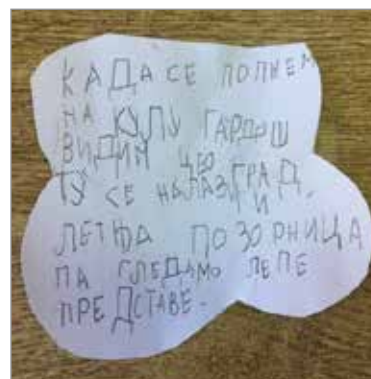 КАДА СЕ ПОПНЕМ
НА КУЛУ ГАРДОШ
ВИДИМ ЦЕО
ГРАД.
ТУ СЕ НАЛАЗИ И
ЛЕТЊА ПОЗОРНИЦА
ПА ГЛЕДАМО ЛЕПЕ
ПРЕДСТАВЕ.